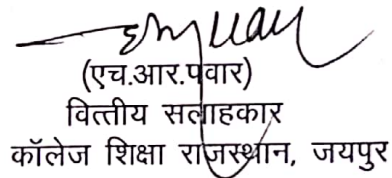 (एच.आर.पवार)
वित्तीय सलाहकार
कॉलेज शिक्षा राजस्थान, जयपुर